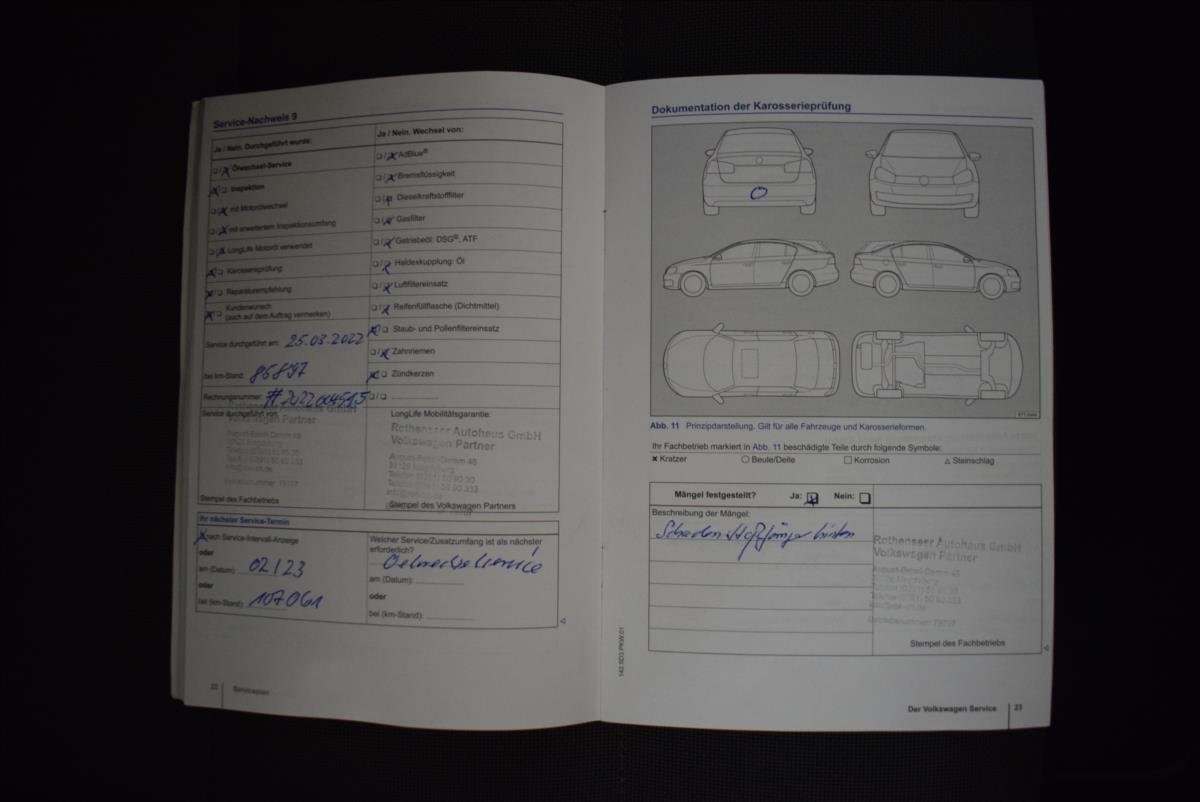 Service-Nachweis 9
Ja / Nein. Durchgeführt wurde:
❏/❏ Ölwechsel-Service
❏ Inspektion
❏/❏ mit Motorölwechsel
❏/❏ mit erweitertem Inspektionsumfang
❏/❏ LongLife Motoröl verwendet
❏ Karosserieprüfung
❏ Reparaturempfehlung
❏ Kundenwunsch
(auch auf dem Auftrag vermerken)
Service durchgeführt am: 25.03.2022
bei km-Stand: 86897
Rechnungsnummer: #2022004515
Service durchgeführt von:
Rothenseer Autohaus GmbH
Volkswagen Partner
August-Bebel-Damm 48
Stempel des Fachbetriebs
Ja / Nein. Wechsel von:
❏/❏ AdBlue®
❏/❏ Bremsflüssigkeit
❏/❏ Dieselkraftstofffilter
❏/❏ Gasfilter
❏/❏ Getriebeöl: DSG®, ATF
❏/❏ Haldexkupplung: Öl
❏/❏ Luftfiltereinsatz
❏/❏ Reifenfüllflasche (Dichtmittel)
❏ Staub- und Pollenfiltereinsatz
❏/❏ Zahnriemen
❏ Zündkerzen
❏/❏ ....................
LongLife Mobilitätsgarantie:
Rothenseer Autohaus GmbH
Volkswagen Partner
August-Bebel-Damm 48
Stempel des Volkswagen Partners
Ihr nächster Service-Termin
nach Service-Intervall-Anzeige
oder
am (Datum): 02/23
oder
bei (km-Stand): 107061
Welcher Service/Zusatzumfang ist als nächster
erforderlich?
Oelwechselservice
am (Datum): ....................
oder
bei (km-Stand): ....................
22 Serviceplan
Dokumentation der Karosserieprüfung
Abb. 11 Prinzipdarstellung. Gilt für alle Fahrzeuge und Karosserieformen.
Ihr Fachbetrieb markiert in Abb. 11 beschädigte Teile durch folgende Symbole:
✖ Kratzer ○ Beule/Delle □ Korrosion △ Steinschlag
Mängel festgestellt? Ja: Nein:
Beschreibung der Mängel:
Schaden Stoßfänger hinten
Rothenseer Autohaus GmbH
Volkswagen Partner
August-Bebel-Damm 48
Stempel des Fachbetriebs
142.5D3.PKW.01
Der Volkswagen Service 23